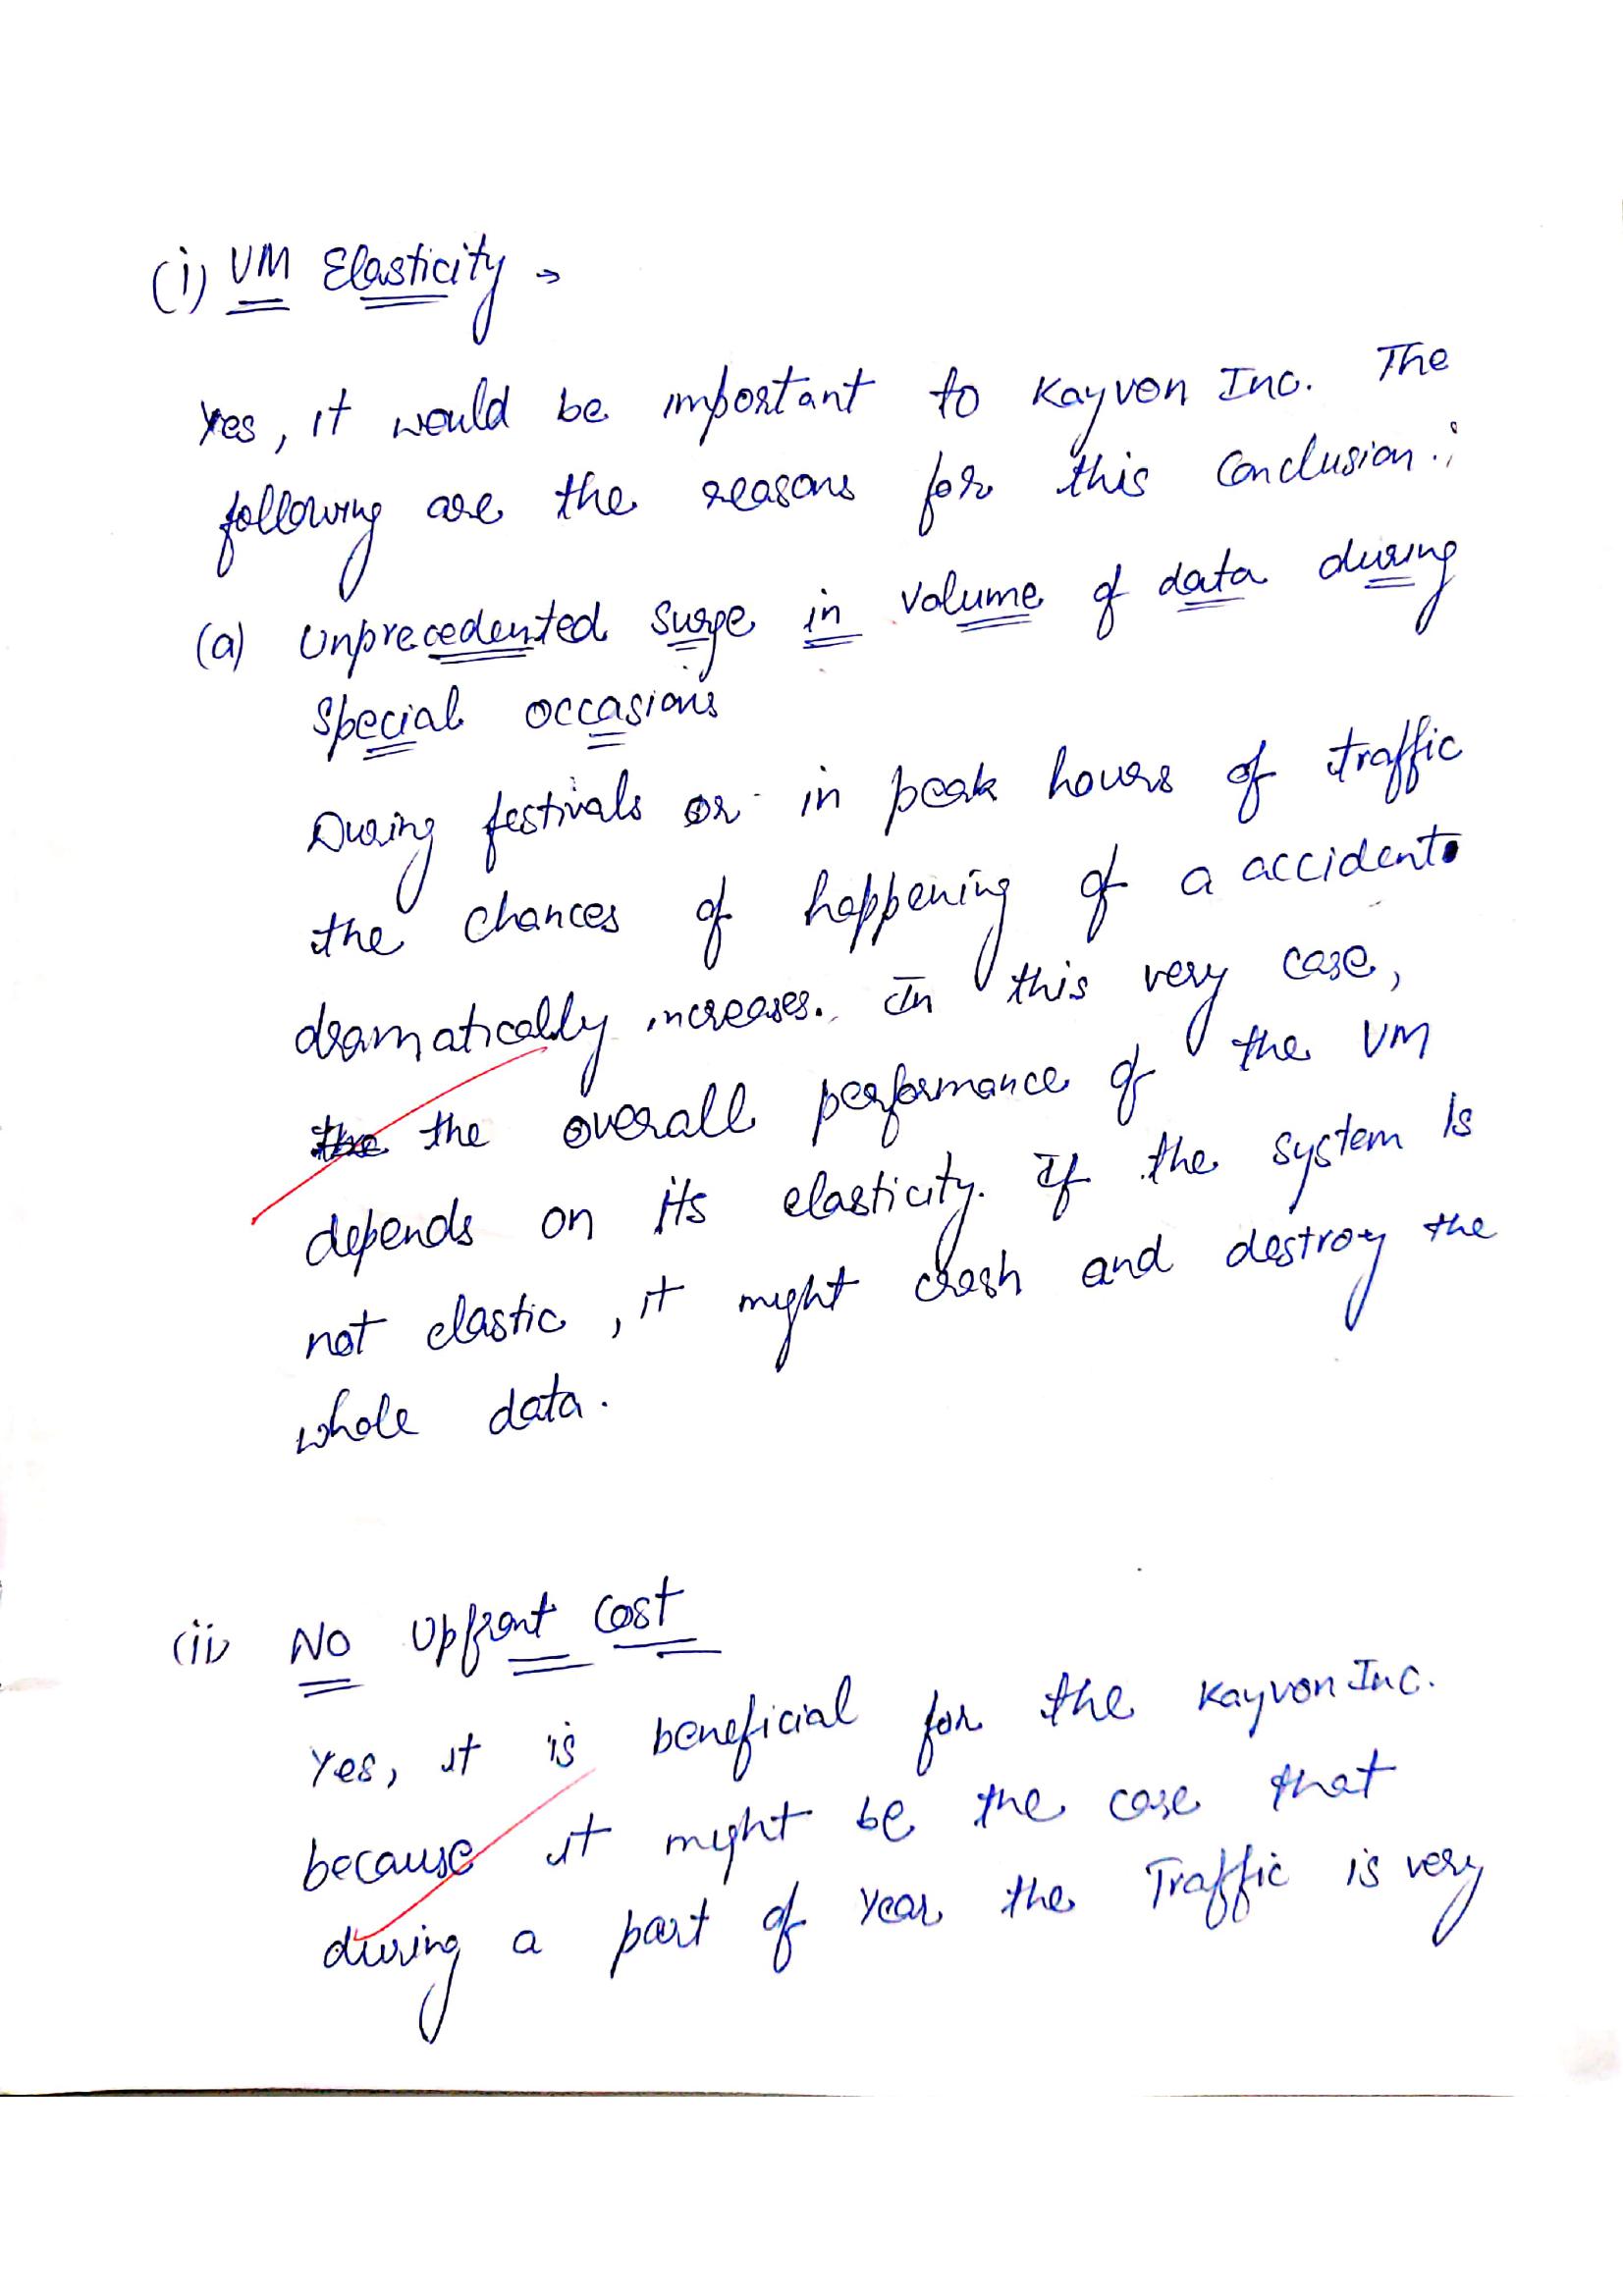 (i) VM Elasticity →
Yes, it would be important to Kayvon Inc. The
following are the reasons for this conclusion :
(a) Unprecedented surge in volume of data during
special occasions
During festivals or in peak hours of traffic
the chances of happening of a accident
dramatically increases. In this very case,
the the overall performance of the VM
depends on its elasticity. If the system is
not elastic, it might crash and destroy the
whole data.
(ii) No Upfront Cost
Yes, it is beneficial for the Kayvon Inc.
because it might be the case that
during a part of year the Traffic is very